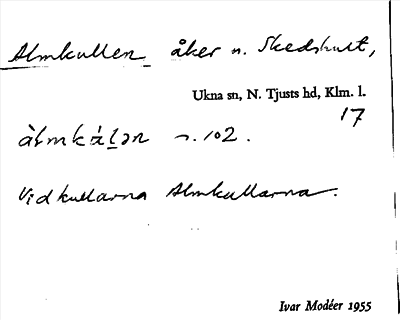 Almkullen åker n. Skedshult,
Ukna sn, N. Tjusts hd, Klm. l.
17
àlmkál̠ən n. 102.
Vid kullarna Almkullarna.
Ivar Modéer 1955